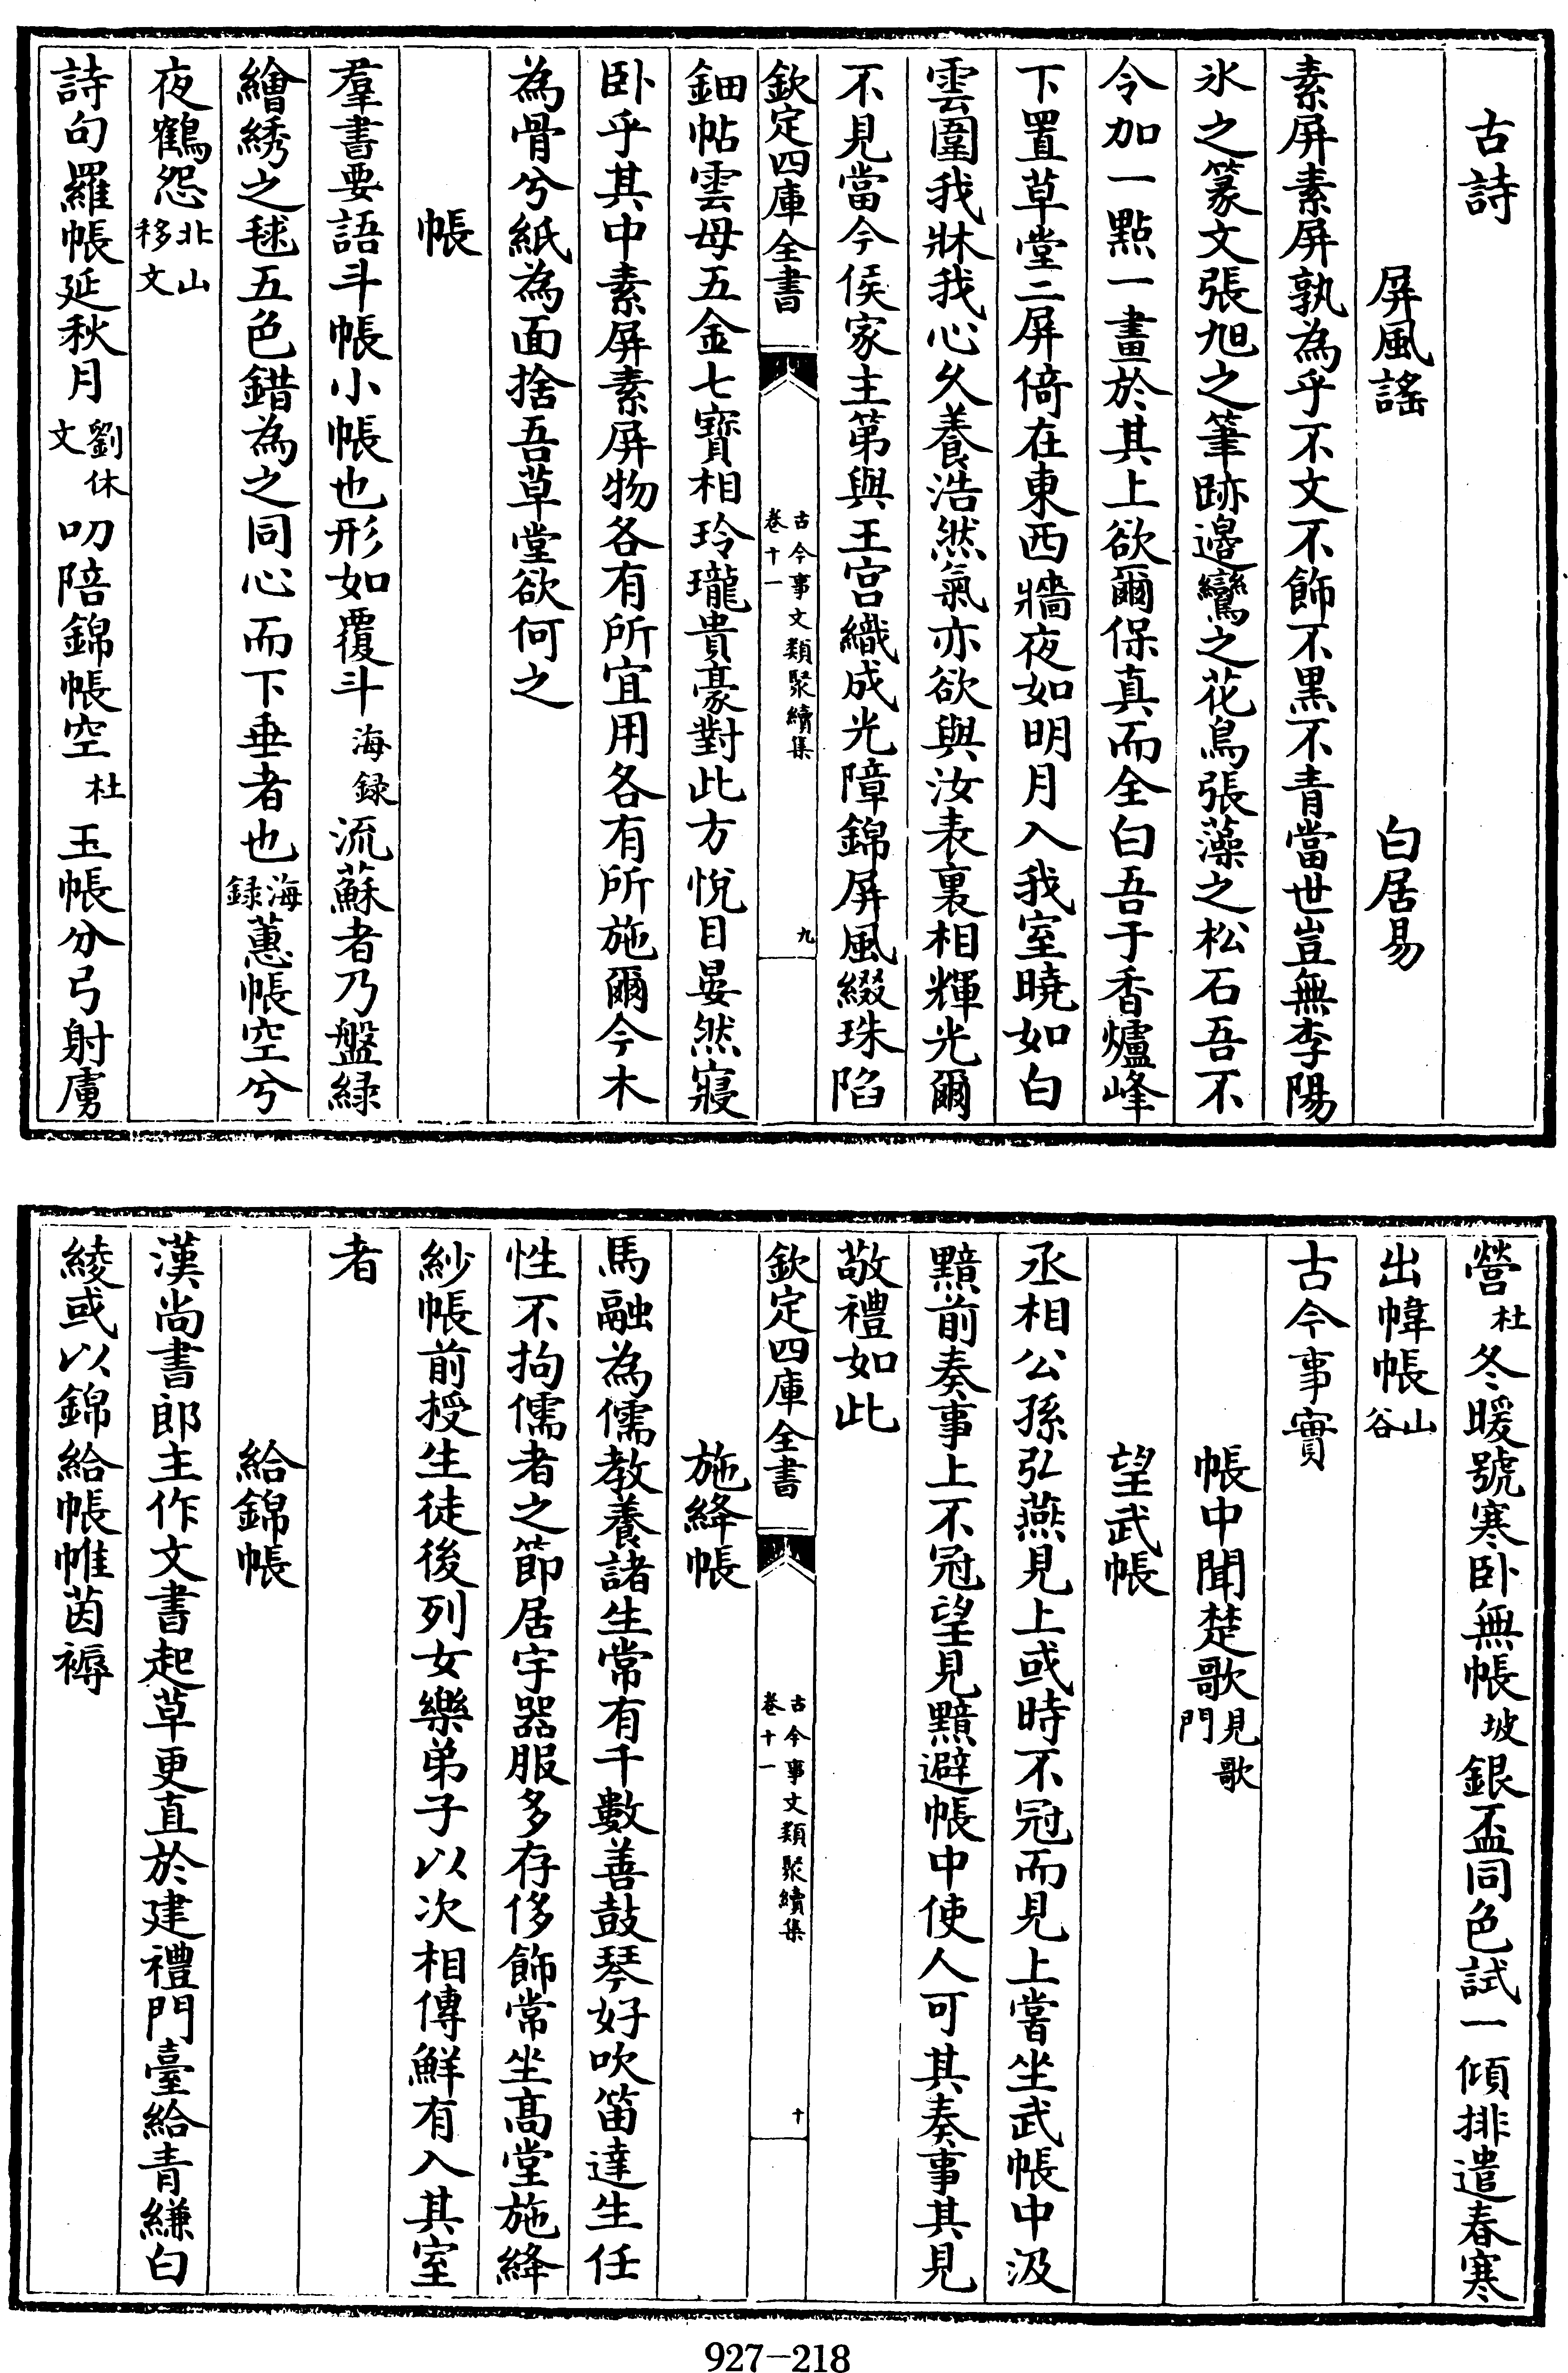 古詩
屏風謠　白居易
素屏素屏孰為乎不文不飾不黒不青當世豈無李陽
氷之篆文張旭之筆跡邉鸞之花鳥張藻之松石吾不
令加一點一畫於其上欲爾保真而全白吾于香爐峰
下置草堂二屏倚在東西牆夜如明月入我室曉如白
雲圍我牀我心久養浩然氣亦欲與汝表裏相輝光爾
不見當今侯家主第與王宫織成光障錦屏風綴珠陷
欽定四庫全書　古今事文類聚續集卷十一　九
鈿帖雲母五金七寳相玲瓏貴豪對此方悅目晏然寢
卧乎其中素屏素屏物各有所宜用各有所施爾今木
為骨兮紙為面捨吾草堂欲何之
帳
羣書要語斗帳小帳也形如覆斗海録流蘇者乃盤緑
繪綉之毬五色錯為之同心而下垂者也海録蕙帳空兮
夜鶴怨北山移文
詩句羅帳延秋月劉休文叨陪錦帳空杜玉帳分弓射虜
營杜冬暖號寒卧無帳坡銀盃同色試一傾排遣春寒
出幃帳山谷
古今事實
帳中聞楚歌見歌門
望武帳
丞相公孫弘燕見上或時不冠而見上嘗坐武帳中汲
黯前奏事上不冠望見黯避帳中使人可其奏事其見
敬禮如此
欽定四庫全書　古今事文類聚續集卷十一　十
施絳帳
馬融為儒教養諸生常有千數善鼓琴好吹笛達生任
性不拘儒者之節居宇器服多存侈飾常坐高堂施絳
紗帳前授生徒後列女樂弟子以次相傳鮮有入其室
者
給錦帳
漢尚書郎主作文書起草更直於建禮門臺給青縑白
綾或以錦給帳帷茵褥
927-218